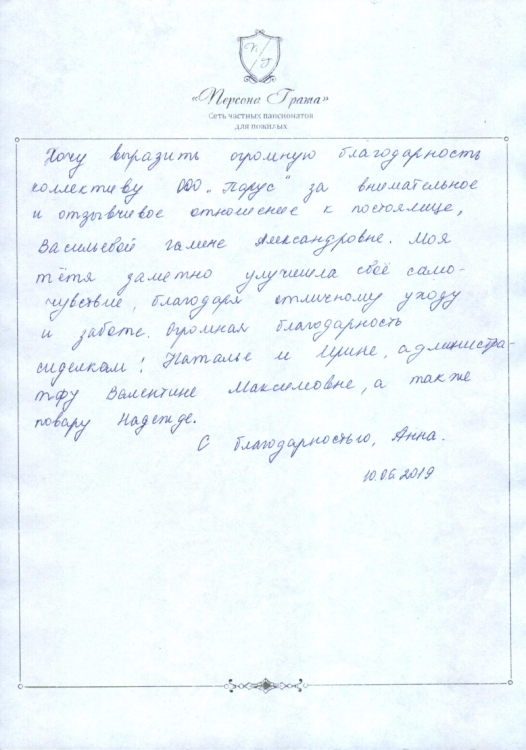 П Г
«Персона Грата»
Сеть частных пансионатов
для пожилых
Хочу выразить огромную благодарность
коллективу ООО „Парус“ за внимательное
и отзывчивое отношение к постоялице,
Васильевой Галине Александровне. Моя
тётя заметно улучшила своё само-
чувствие, благодаря отличному уходу
и заботе. Огромная благодарность
сиделкам: Наталье и Ирине, администра-
тору Валентине Максимовне, а также
повару Надежде.
С благодарностью, Анна.
10.06.2019